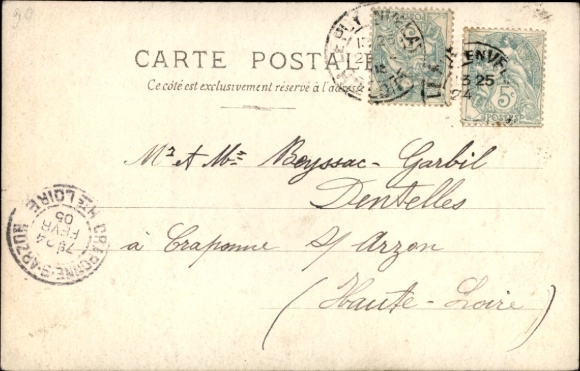 20
CARTE POSTALE
Ce côté est exclusivement réservé à l'adresse
5c
POSTES
25
Mr et Me Beyssac-Garbil
Dentelles
à Craponne s/ Arzon
(Haute-Loire)
CRAPONNE-S-ARZON
Hte LOIRE
24
FEVR
05